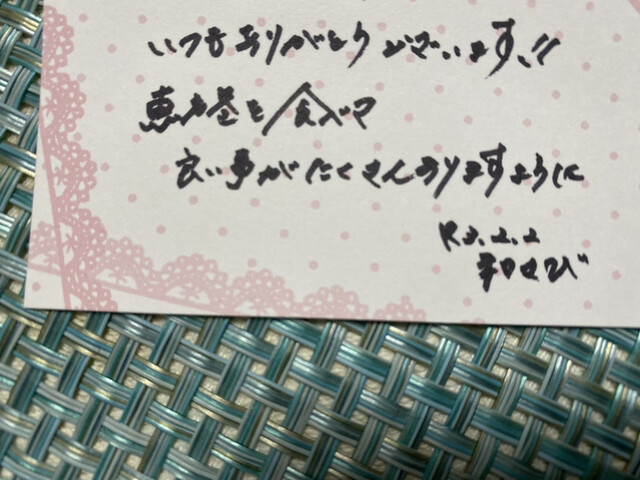 いつもありがとうございます!!
恵方巻を食べて
良い事がたくさんありますように
R3.2.2